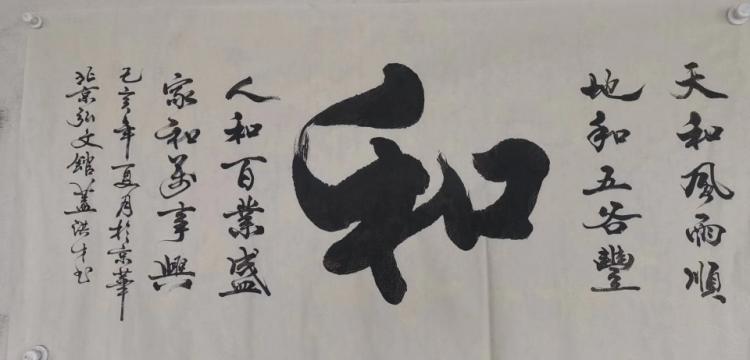 天和風雨順
地和五谷豐
和
人和百業盛
家和萬事興
己亥年夏月於京華
北京弘文館蓋洪才书